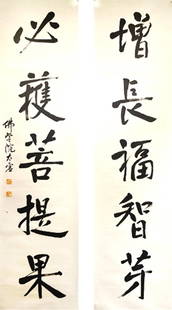 增長福智芽
必獲菩提果
佛學院